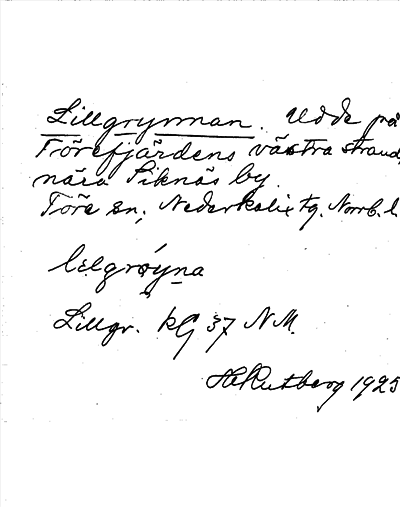 Lillgrynnan. Udde på
Törefjärdens västra strand,
nära Siknäs by.
Töre sn, Nederkalix tg. Norrb. l.
lilgrøyna
Lillgr. kG 37 N.M.
H Rutberg 1925